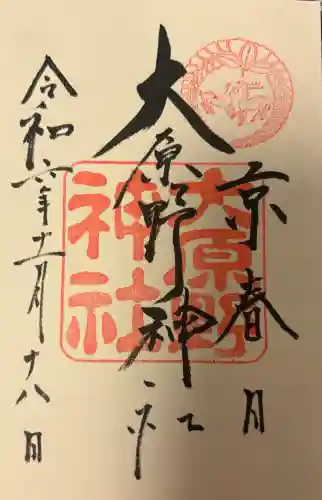 京春日
大原野神社
令和六年十一月十八日
大原野
神社